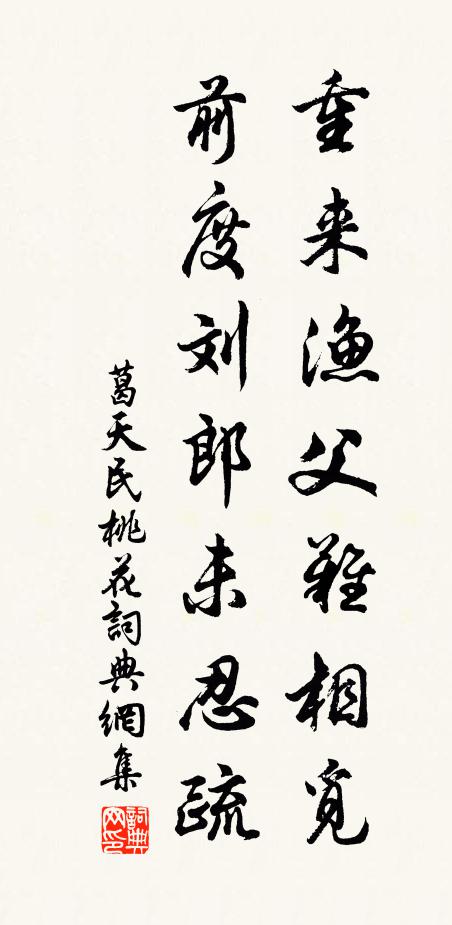 重来渔父难相觅
前度刘郎未忍疏
葛天民桃花詞典網集
詞典网印